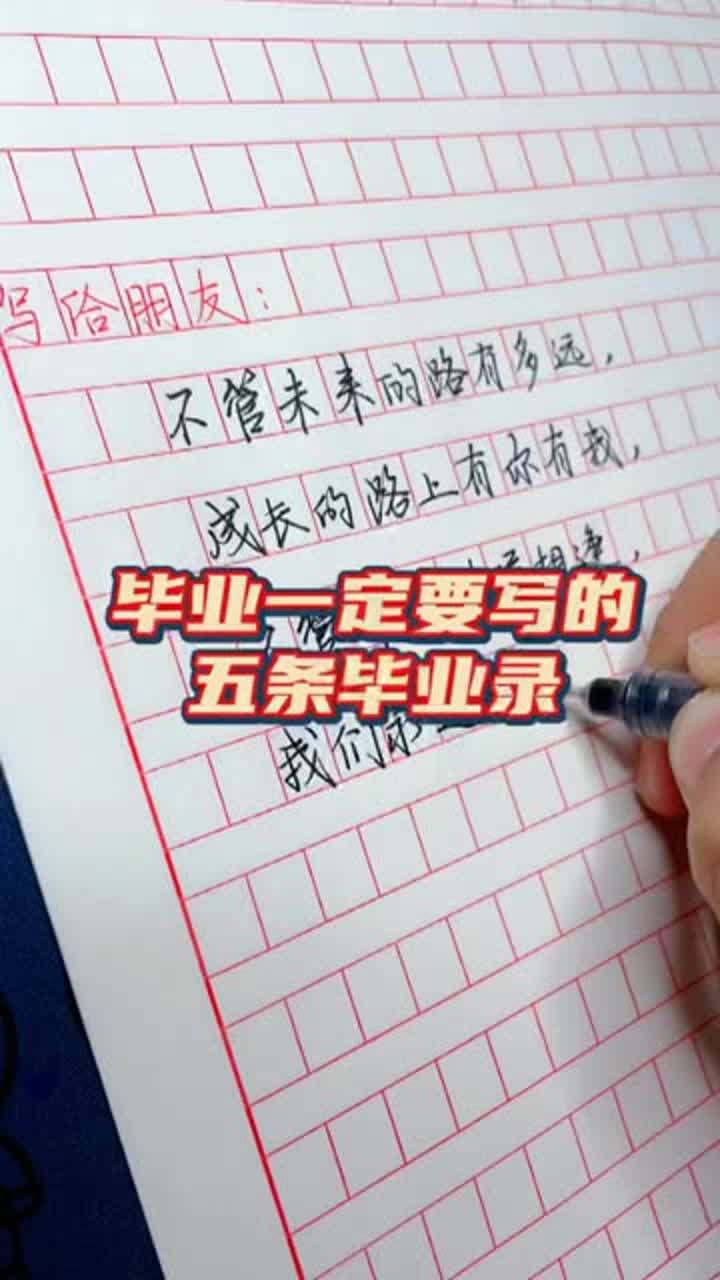 写给朋友：
不管未来的路有多远，
成长的路上有你有我，
相逢，
毕业一定要写的
管
五条毕业录
我们永